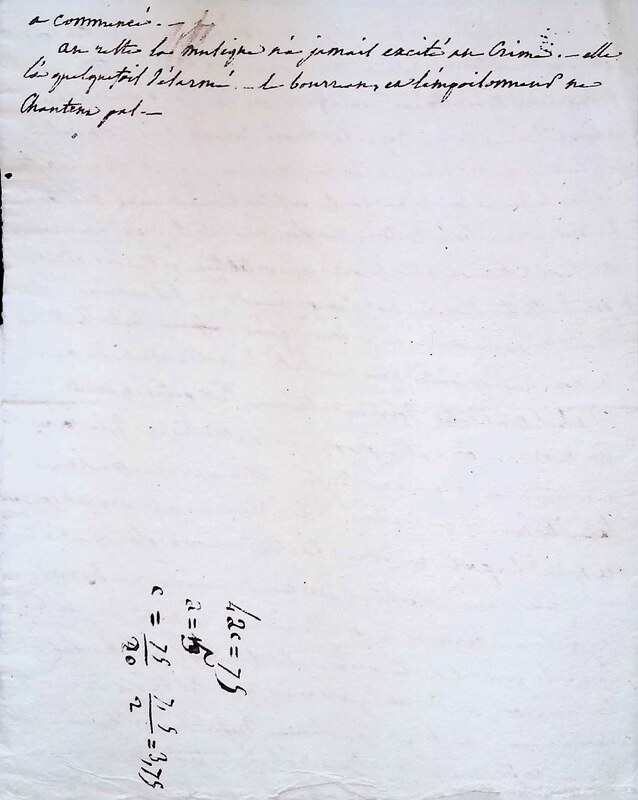 a commencé. —
au reste la musique n'a jamais excité au Crime. — elle
l'a quelquefois désarmé. — le bourreau, et l'empoisonneur ne
Chantent pas. —
42c = 75
a =
c = 75/20 7,5/2 = 3,75